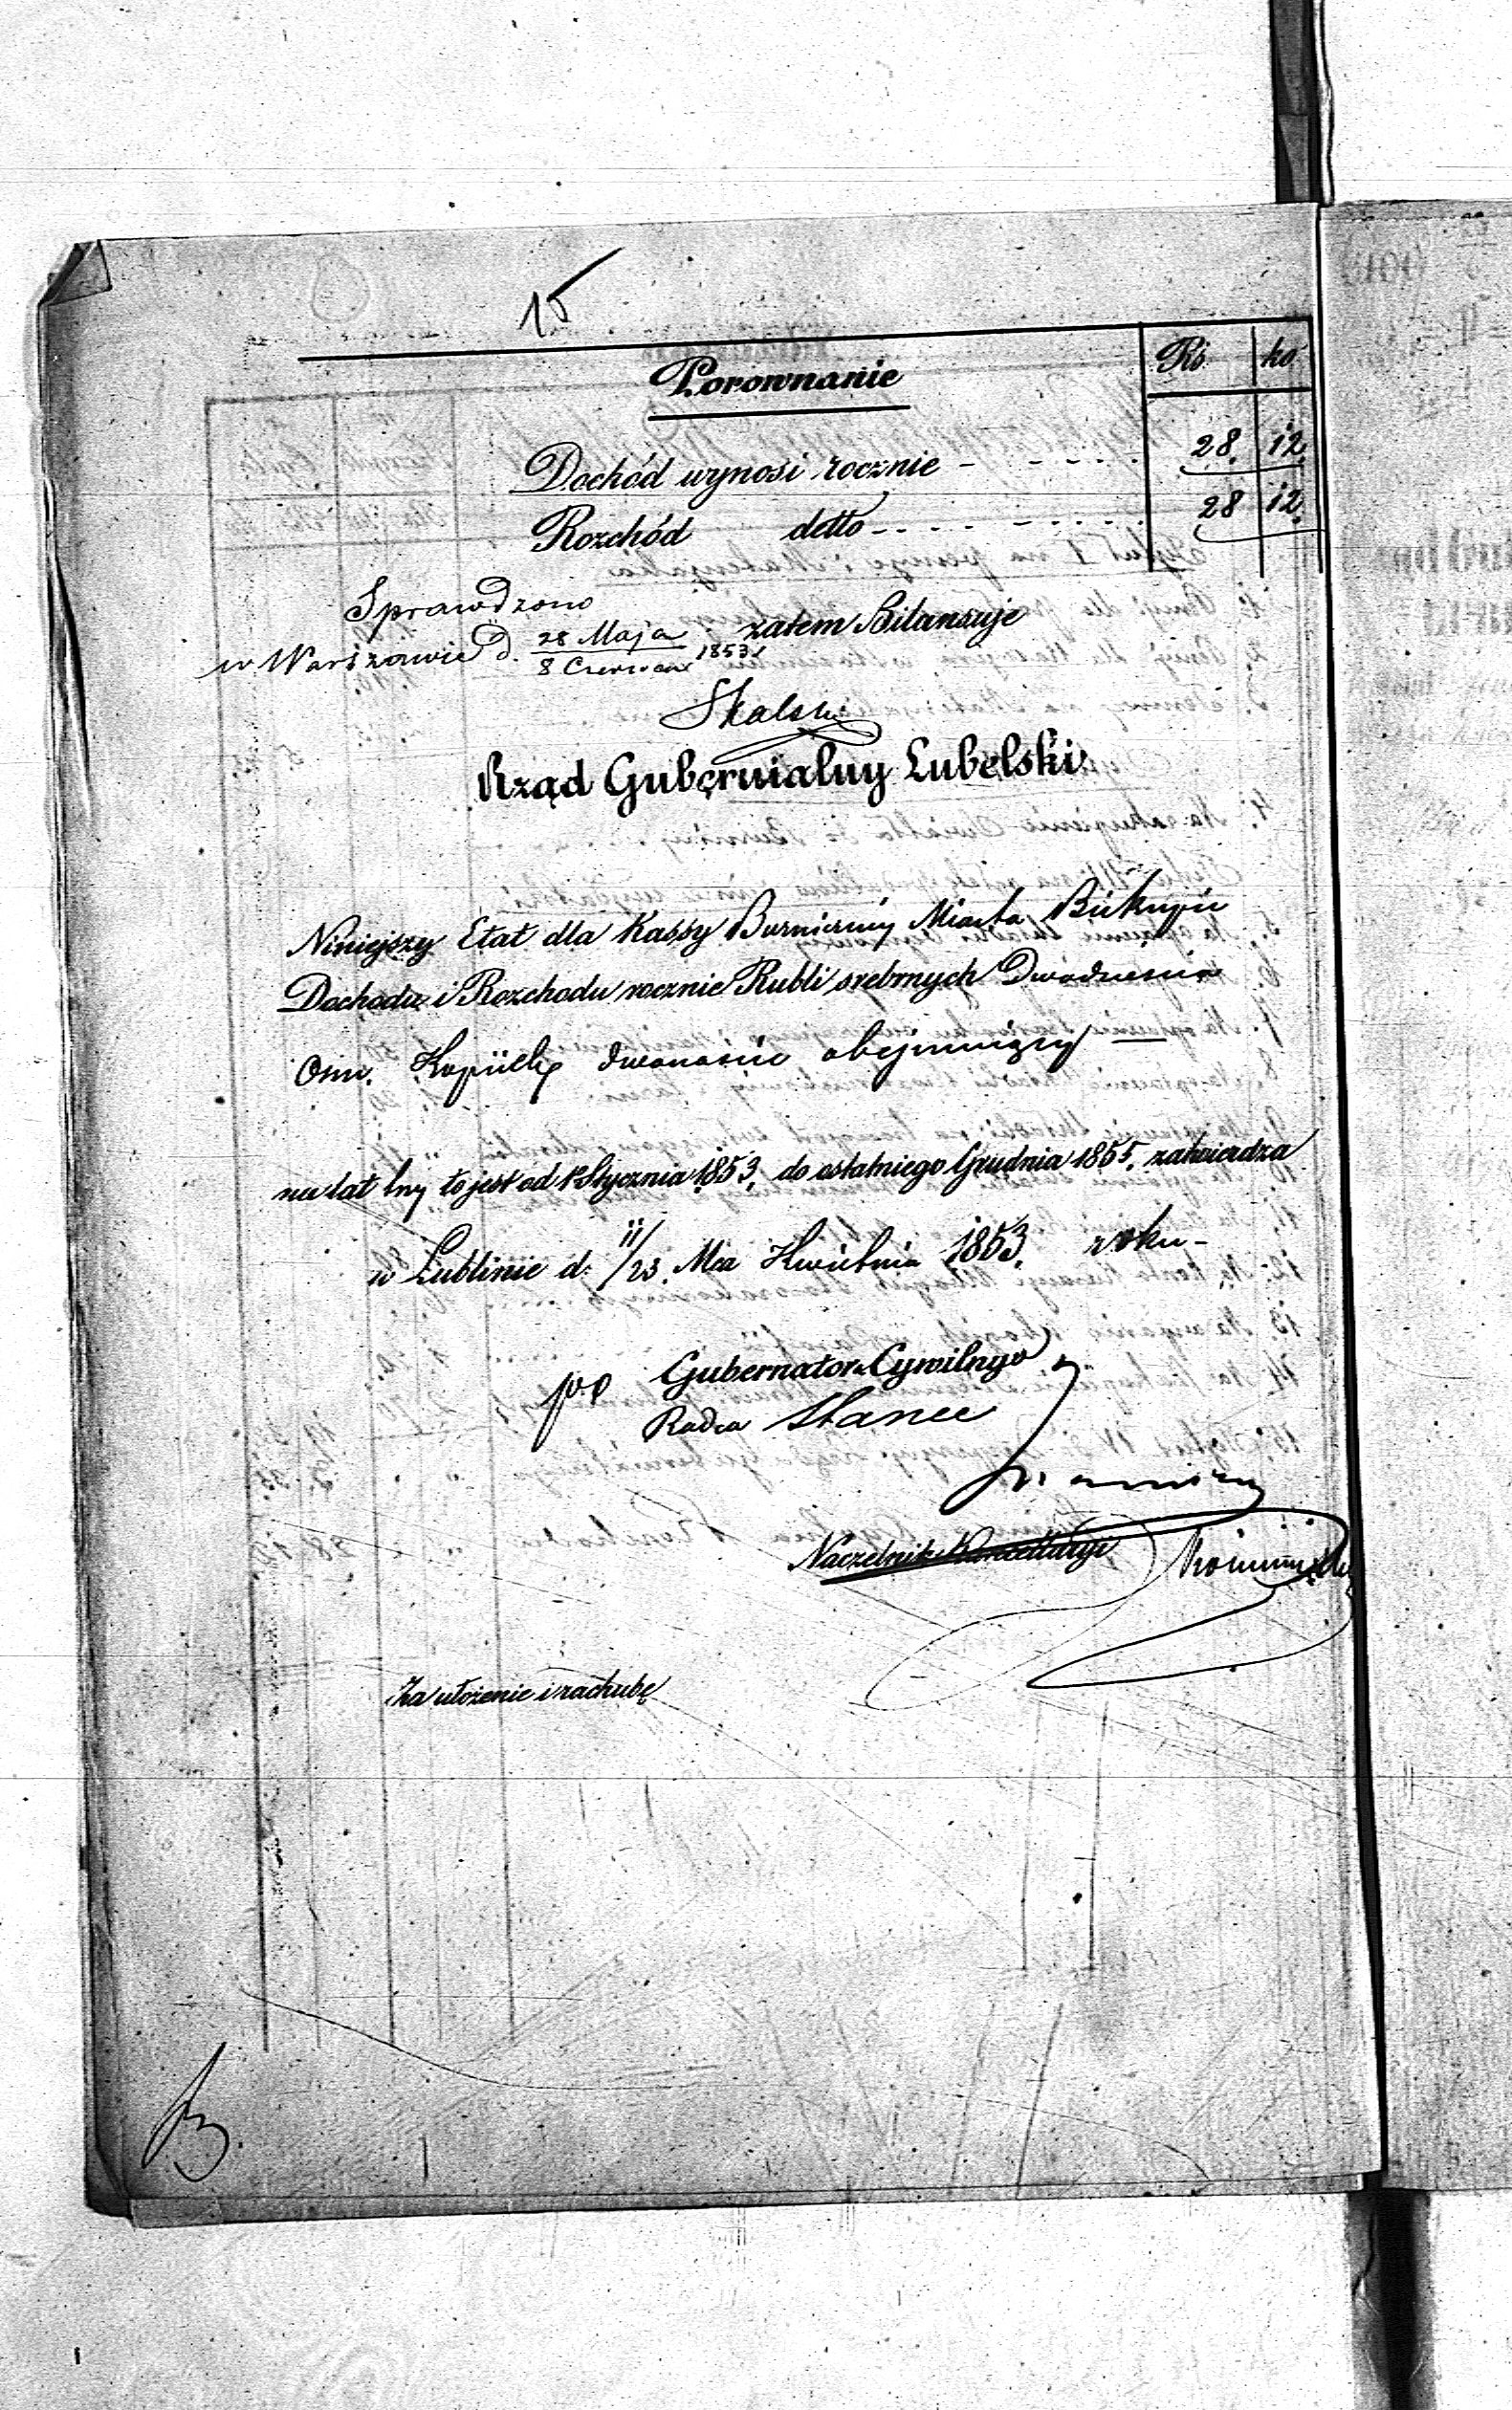 15
Porownanie Rs ko
Dochód wynosi rocznie - - - - - 28. 12
Rozchód detto - - - - - - - - 28 12.
Sprawdzono
w Warszawie d. 28 Maja / 8 Czerwca 1853 zatem Bilansuje
Skalski
Rząd Gubernialny Lubelski
Niniejszy Etat dla Kassy Miasta
Dochodu i Rozchodu rocznie Rubli srebrnych Dwadzieścia
Osm. Kopiiek dwanaście obejmuiący
na lat to jest od 1o Stycznia 1853. do ostatniego Grudnia 1855. zatwierdza
w Lublinie d. 11/23. Mca Kwietnia 1853. roku -
po Gubernatora Cywilnego
Radca Stanu
Naczelnik Kancellaryi
Za ułożenie i rachubę